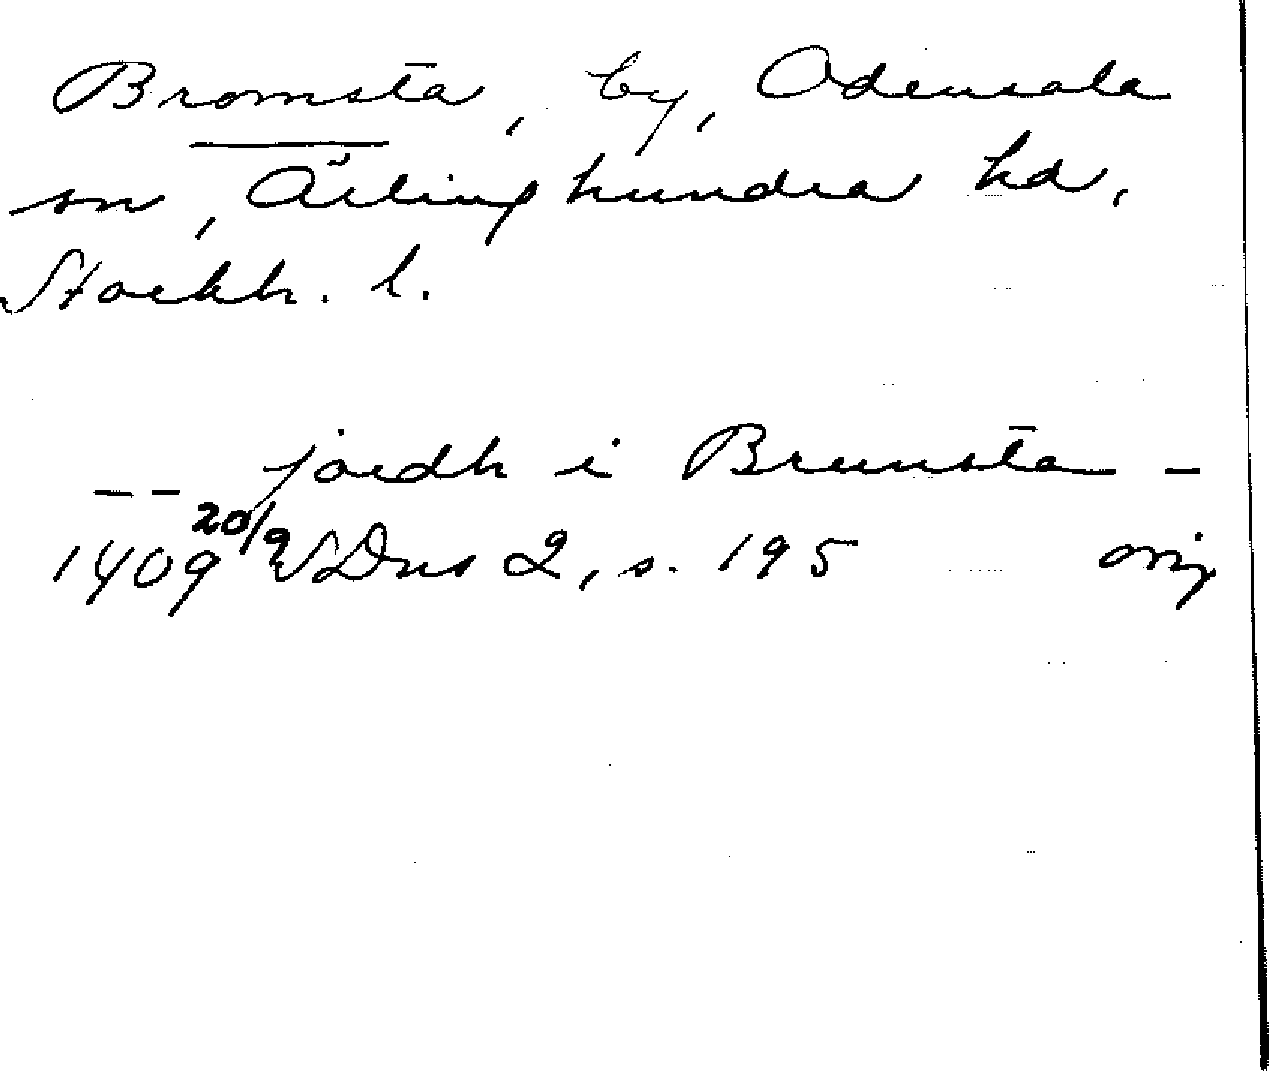 Bromsta, by, Odensala
sn, Ärlinghundra hd,
Stockh. l.
-- jordh i Brunsta -
1409 20/9 SDns 2, s. 195 orig